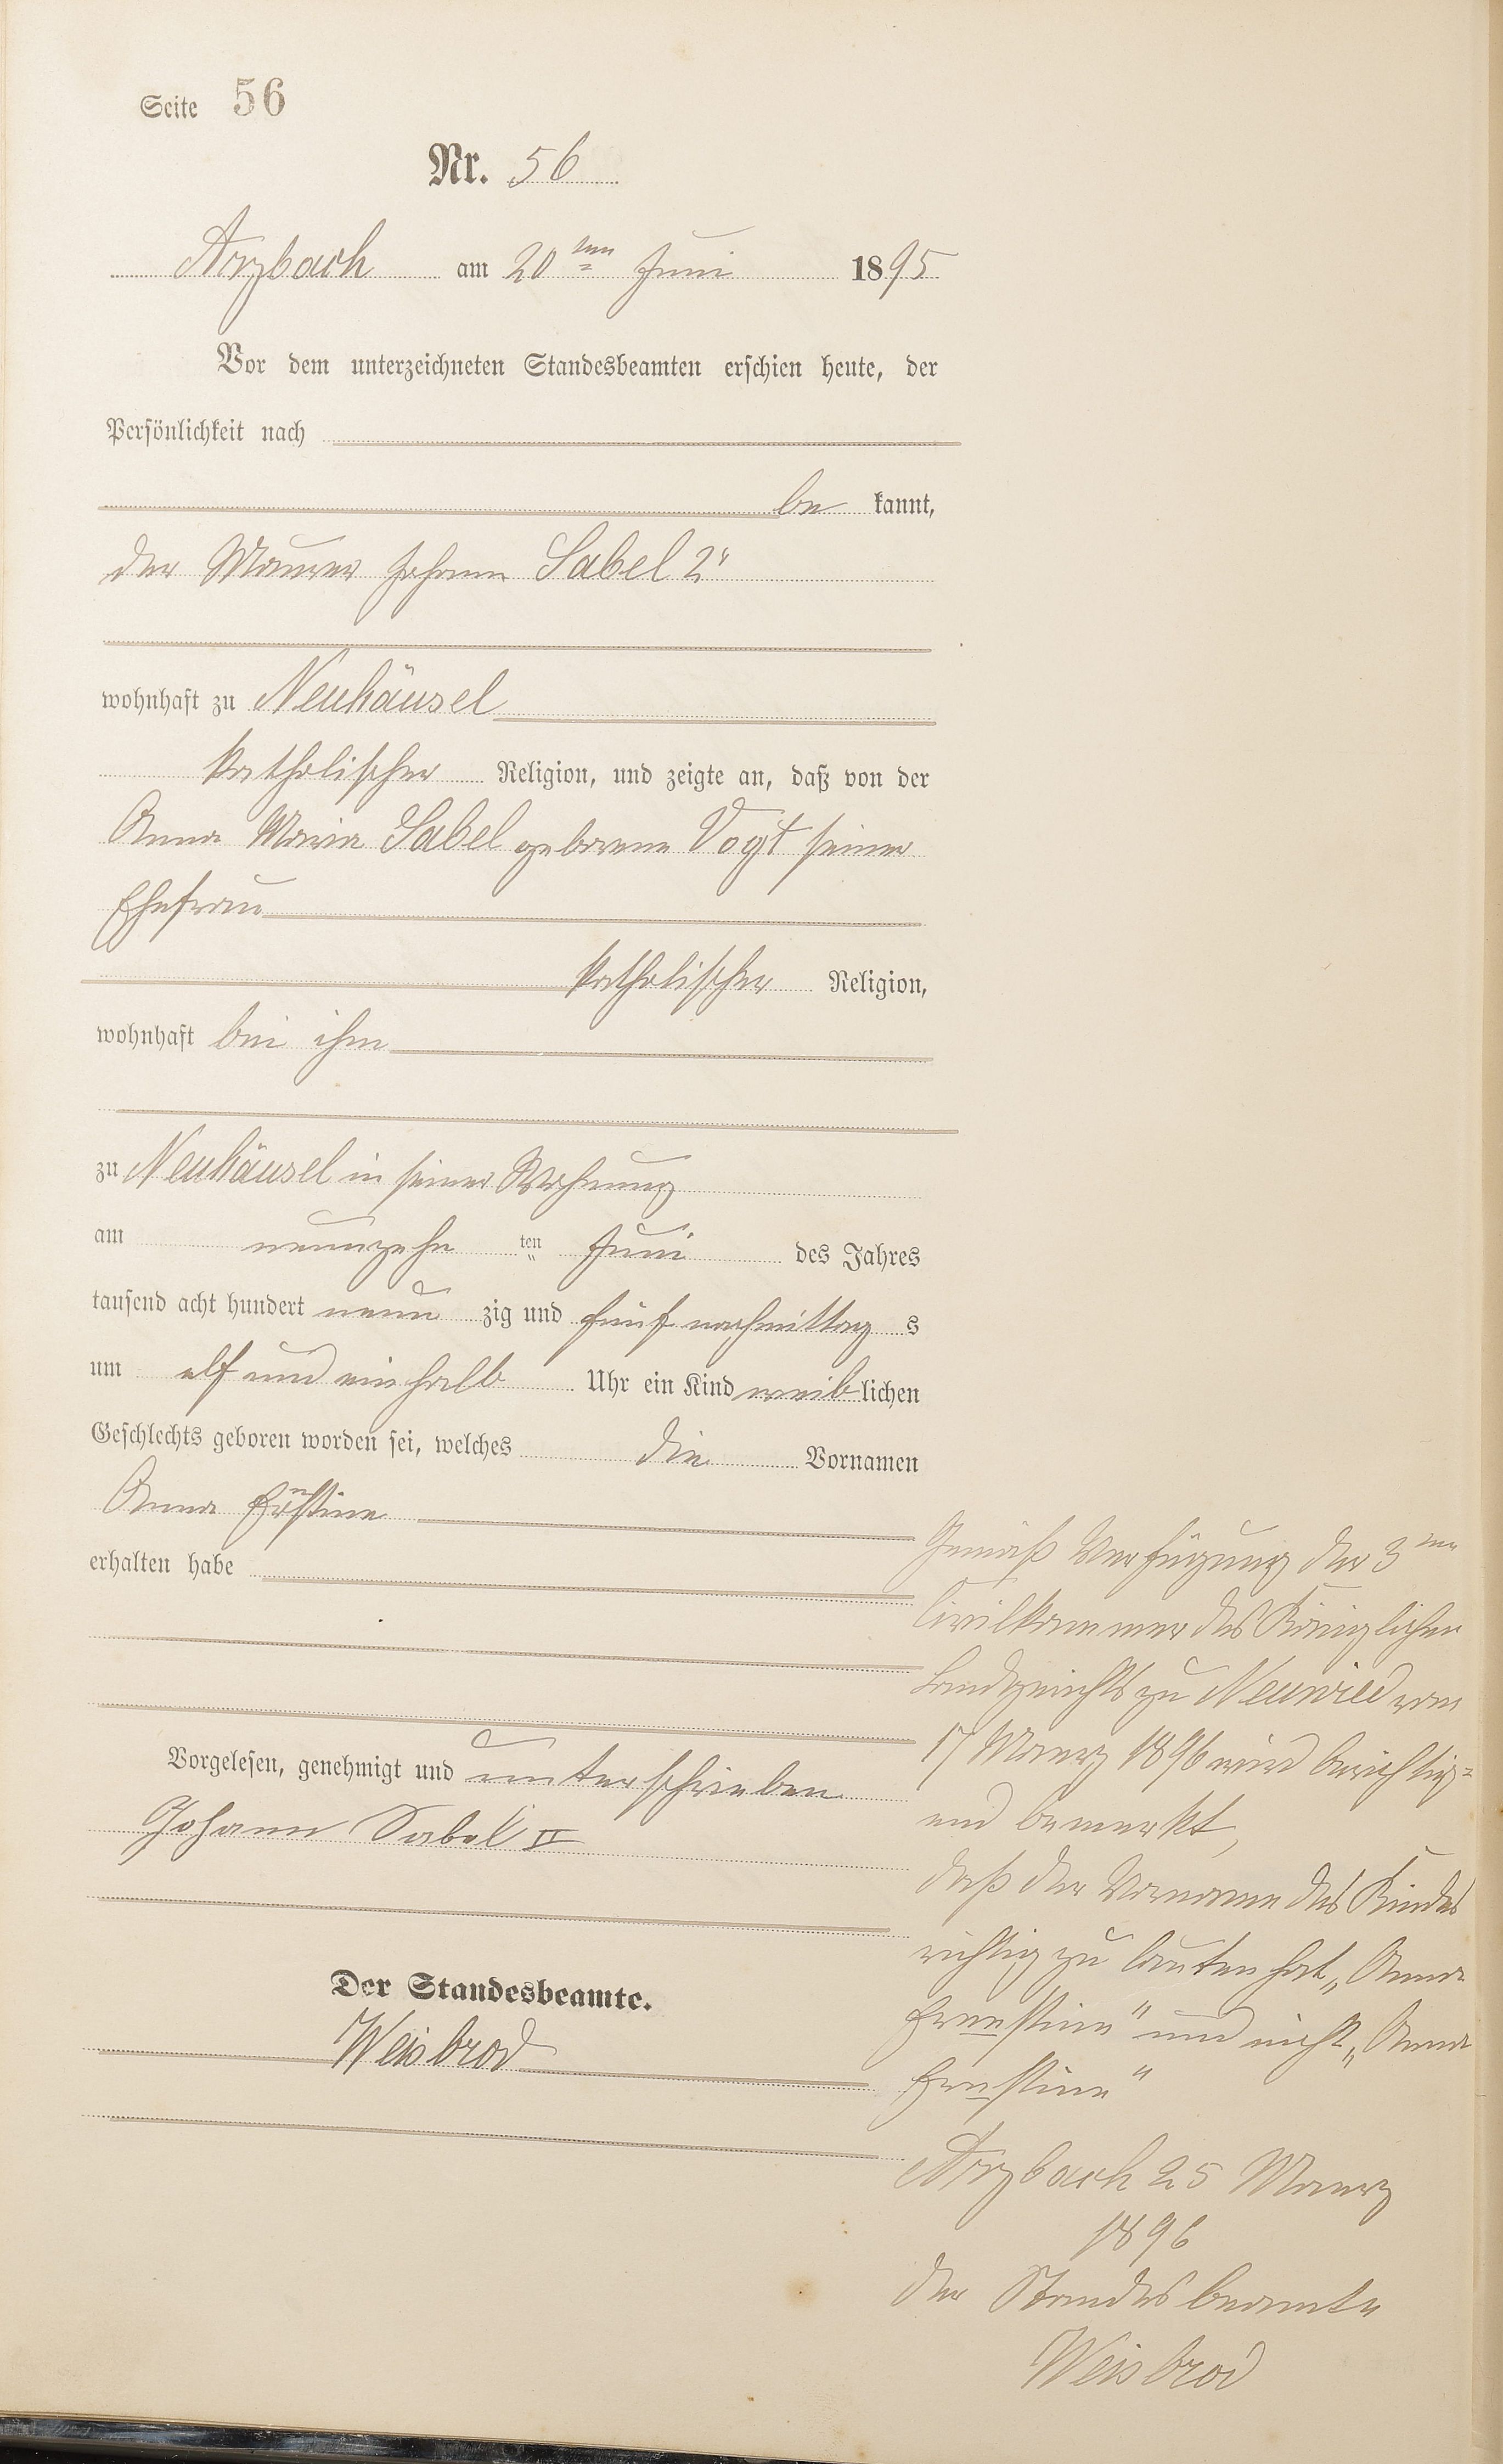 Seite 56
Nr. 56
Arzbach am 20ten Juni 1895
Vor dem unterzeichneten Standesbeamten erschien heute, der
Persönlichkeit nach
be kannt,
der Maurer Johann Sabel 2r
wohnhaft zu Neuhäusel
katholischer Religion, und zeigte an, daß von der
Anna Maria Sabel geborene Vogt seiner
Ehefrau
katholischer Religion,
wohnhaft bei ihm
zu Neuhäusel in seiner Wohnung
am neunzehn ten Juni des Jahres
tausend acht hundert neun zig und fünf nachmittag s
um elf und ein halb Uhr ein Kind weiblichen
Geschlechts geboren worden sei, welches die Vornamen
Anna
erhalten habe
Vorgelesen, genehmigt und unterschrieben
Johann Sabel II
Der Standesbeamte.
Weisbrod
Gemäß Verfügung der 3ten
Civilkammer des Königlichen
Landgerichts zu Neuwied vom
17 Maerz 1896 wird berichtig-
end bemerkt,
daß der Vorname des Kindes
richtig zu lauten hat „Anna
Ernestine" und nicht „Anna
Arzbach 25 Maerz
1896
Der Standesbeamte
Weisbrod